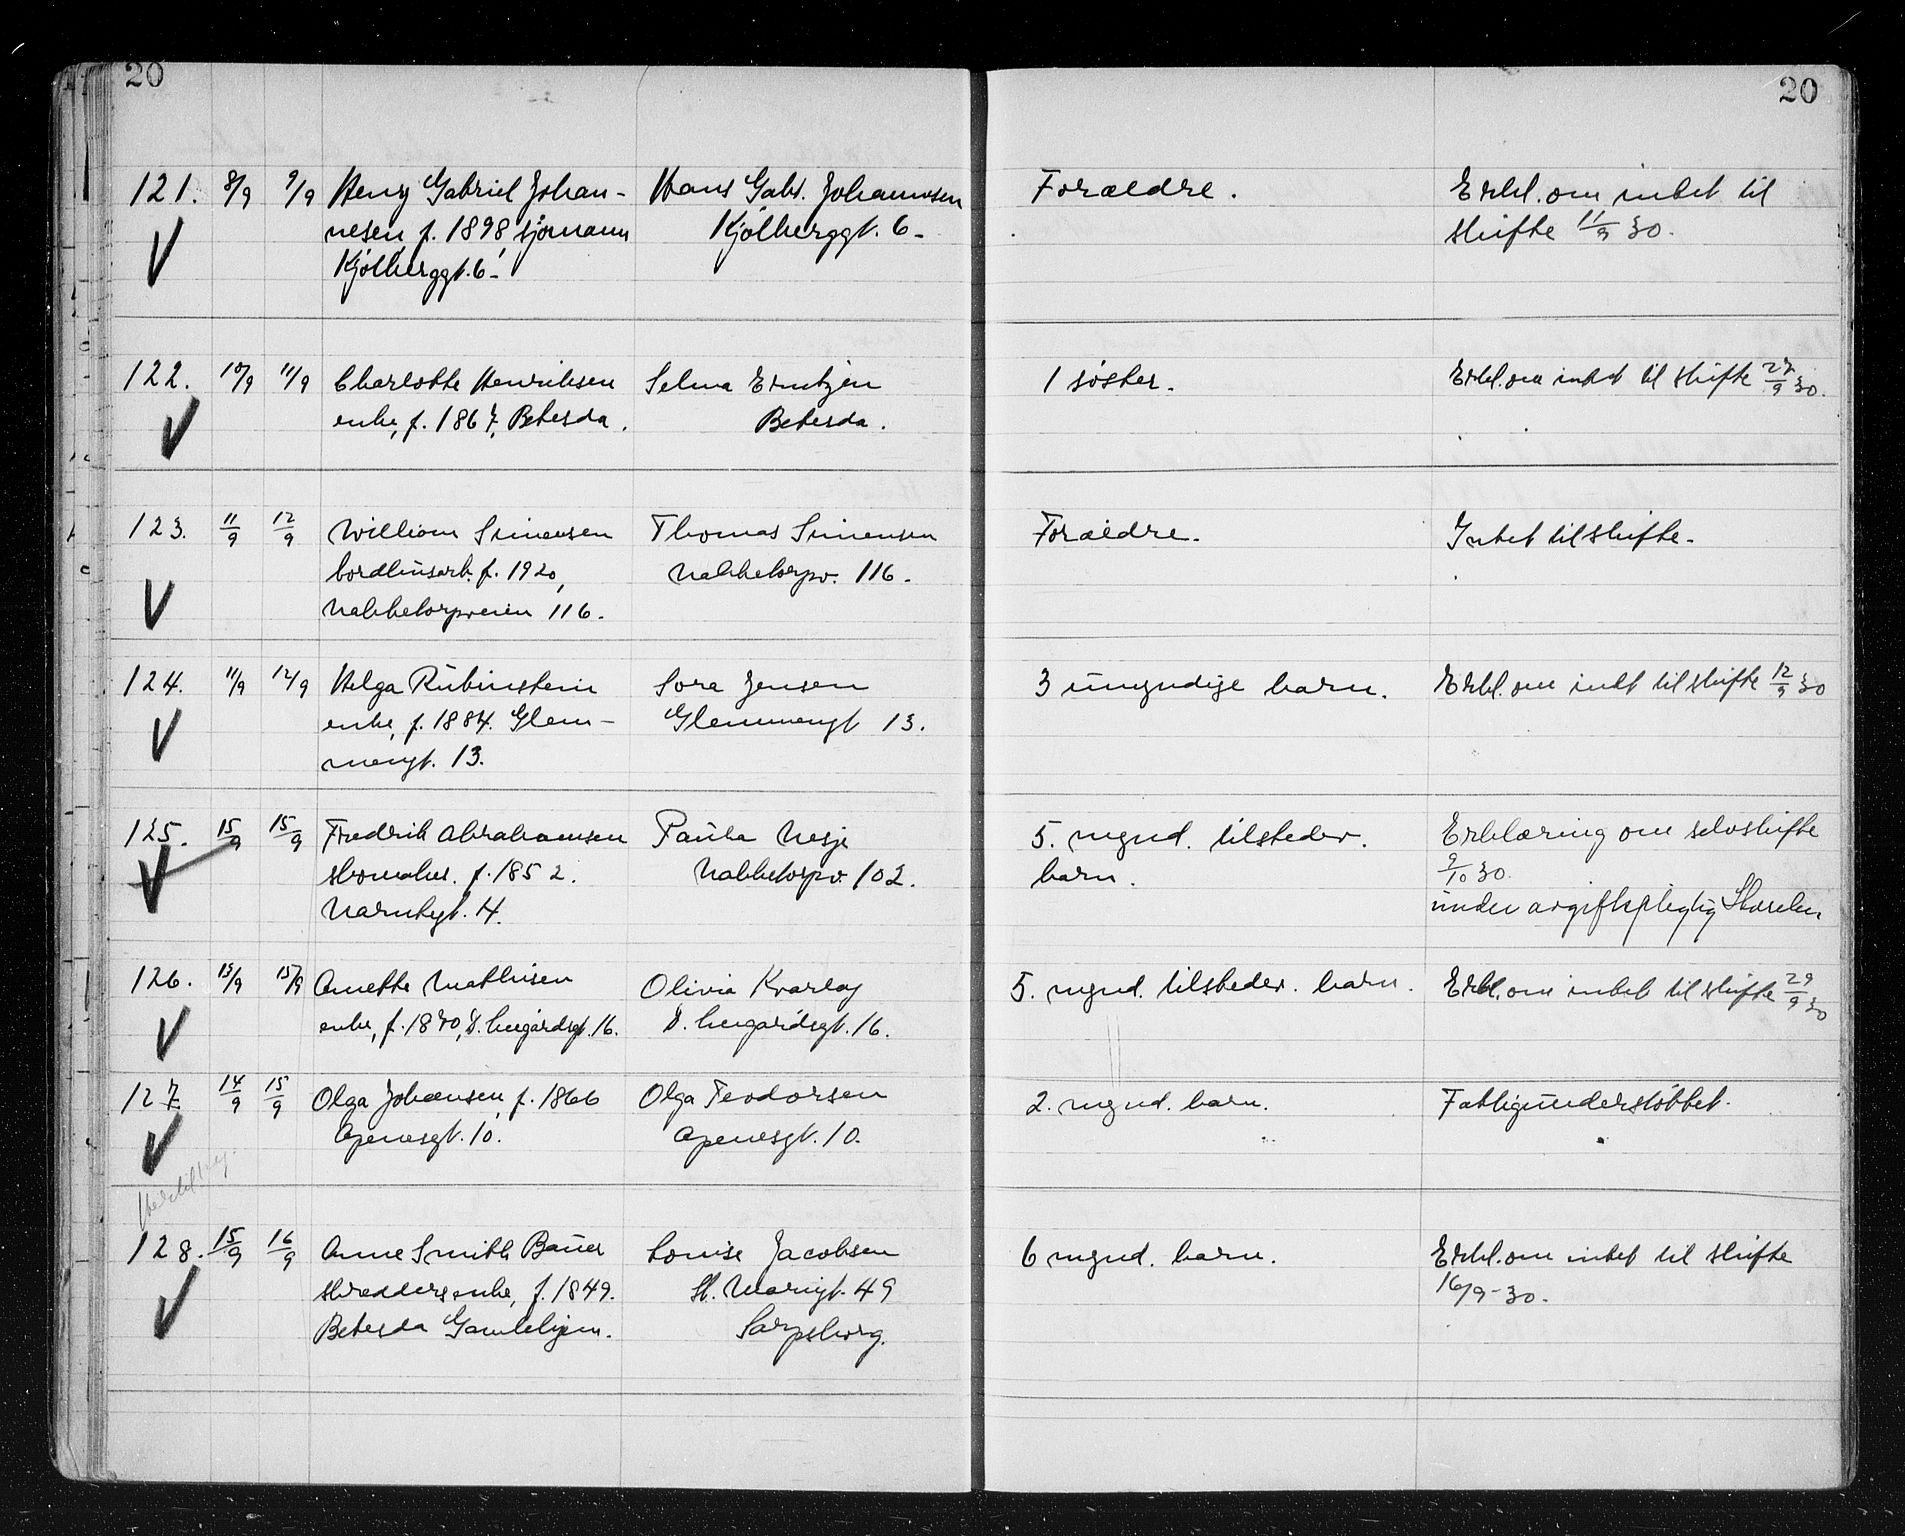 20
20
121. 8/9 9/9 Henry Gabriel Johan- Hans Gabr. Johannesen Forældre. Erkl. om intet til
nesen, f. 1898, sjømann Kjølberggt. 6- skifte 11/9 30.
Kjølberggt. 6-
122. 10/9 11/9 Charlotte Henriksen Selma Erntzen 1 søster. Erkl. om intet til skifte 27/9 30.
enke, f. 1867, Betesda. Betesda.
123. 11/9 12/9 William Simensen Thomas Simensen Forældre. Intet til skifte.
f. 1920, Nabbetorpv. 116.
Nabbetorpveien 116.
124. 11/9 12/9 Helga Rubinstein Sora Jensen 3 umyndige barn. Erkl. om intet til skifte 12/9 30
enke, f. 1884. Glem- Glemmengt 13.
mengt. 13.
125. 15/9 15/9 Fredrik Abrahamsen Paula Nesje 5. mynd. tilsteder. Erklæring om selvskifte
skomaker. f. 1852. Nabbetorpv. 102. barn. 9/10 30.
Narukgt. 4. under avgiftspligtig Størrelse
126. 13/9 15/9 Anette Mathisen Olivia Kvarløy 5. mynd. tilsteder. barn. Erkl. om intet til skifte 29/9 30
enke, f. 1870, 16. 16.
127 14/9 15/9 Olga Johansen, f. 1866 Olga Teodorsen 2. mynd. barn. Fattigunderstøttet.
Apenesgt. 10. Apenesgt. 10.
128. 15/9 16/9 Anne Smith Bauer Louise Jacobsen 6 mynd. barn. Erkl. om intet til skifte
skreddersenke, f. 1849. St. Mariegt. 49 16/9-30.
Betesda Gamlehjem. Sarpsborg.